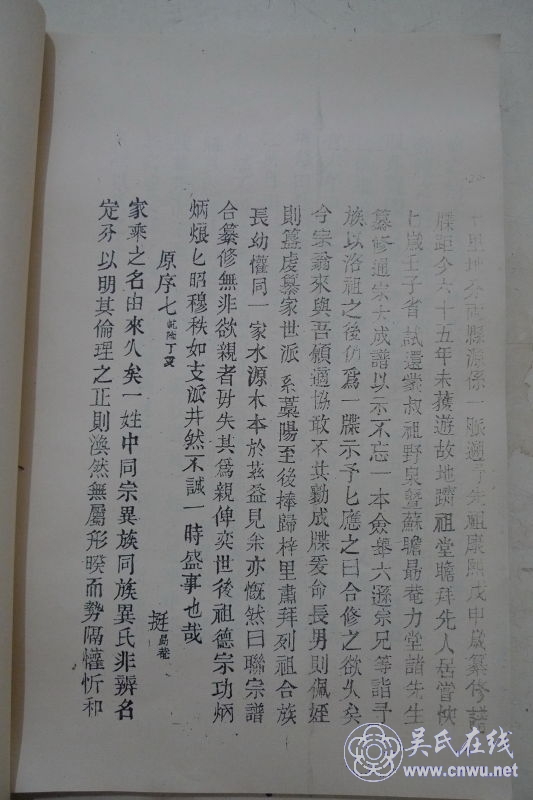 十里地分兩縣源係一脈邇予先祖康熙戊申歲纂修譜
牒距今六十五年未獲遊故地躋祖堂瞻拜先人居嘗怏
七歲壬子省試還蒙叔祖野泉暨蘇瞻勗菴力堂諸先生
纂修通宗大成譜以示不忘一本僉舉六遜宗兄等詣予
族以洛祖之後仍爲一牒示予匕應之曰合修之欲久矣
今宗翁來與吾願適協敢不共勷成牒爰命長男則佩姪
則簋虔纂家世派系藁陽至後捧歸梓里肅拜列祖合族
長幼懽同一家水源木本於茲益見余亦慨然曰聯宗譜
合纂修無非欲親者毋失其爲親俾奕世後祖德宗功炳
炳烺匕昭穆秩如支派井然不誠一時盛事也哉
挺勗菴
原序七乾隆丁夘
家乘之名由來久矣一姓中同宗異族同族異氏非辨名
定分以明其倫理之正則渙然無屬形暌而勢隔懽忻和
吴氏在线
www.cnwu.net